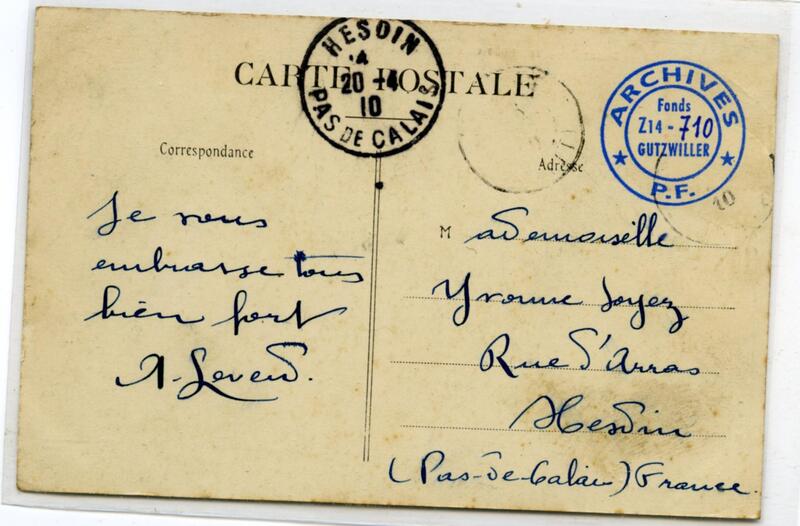 CARTE POSTALE
HESDIN
20 -4
10
PAS DE CALAIS
ARCHIVES
Fonds
Z14 - 710
GUTZWILLER
P.F.
10
Correspondance
Adresse
Je vous
embrasse tous
bien fort
Mademoiselle
Yvonne
Rue d'Arras
Hesdin
(Pas-de-Calais) France.